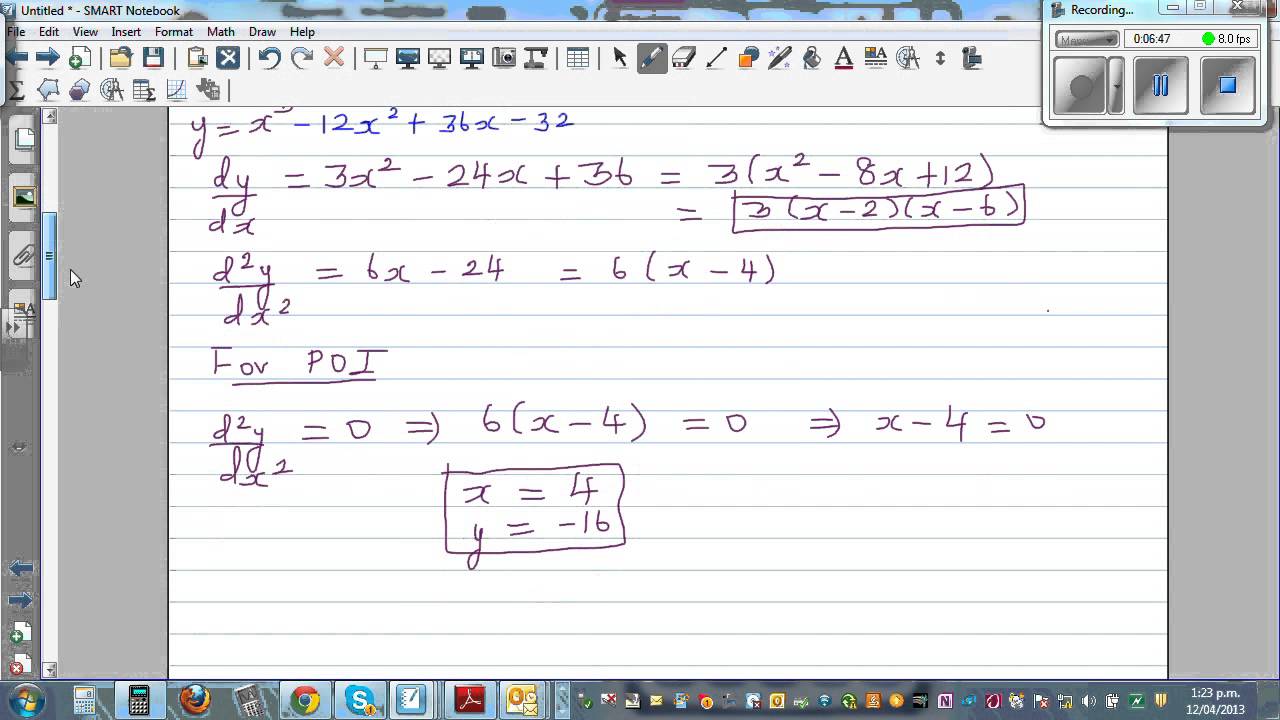 Untitled * - SMART Notebook
File Edit View Insert Format Math Draw Help
Recording...
Menu
0:06:47 8.0 fps
y = x³ - 12x² + 36x - 32
dy/dx = 3x² - 24x + 36 = 3(x² - 8x + 12)
= 3(x - 2)(x - 6)
d²y/dx² = 6x - 24 = 6(x - 4)
For POI
d²y/dx² = 0 ⇒ 6(x - 4) = 0 ⇒ x - 4 = 0
x = 4
y = -16
1:23 p.m.
12/04/2013